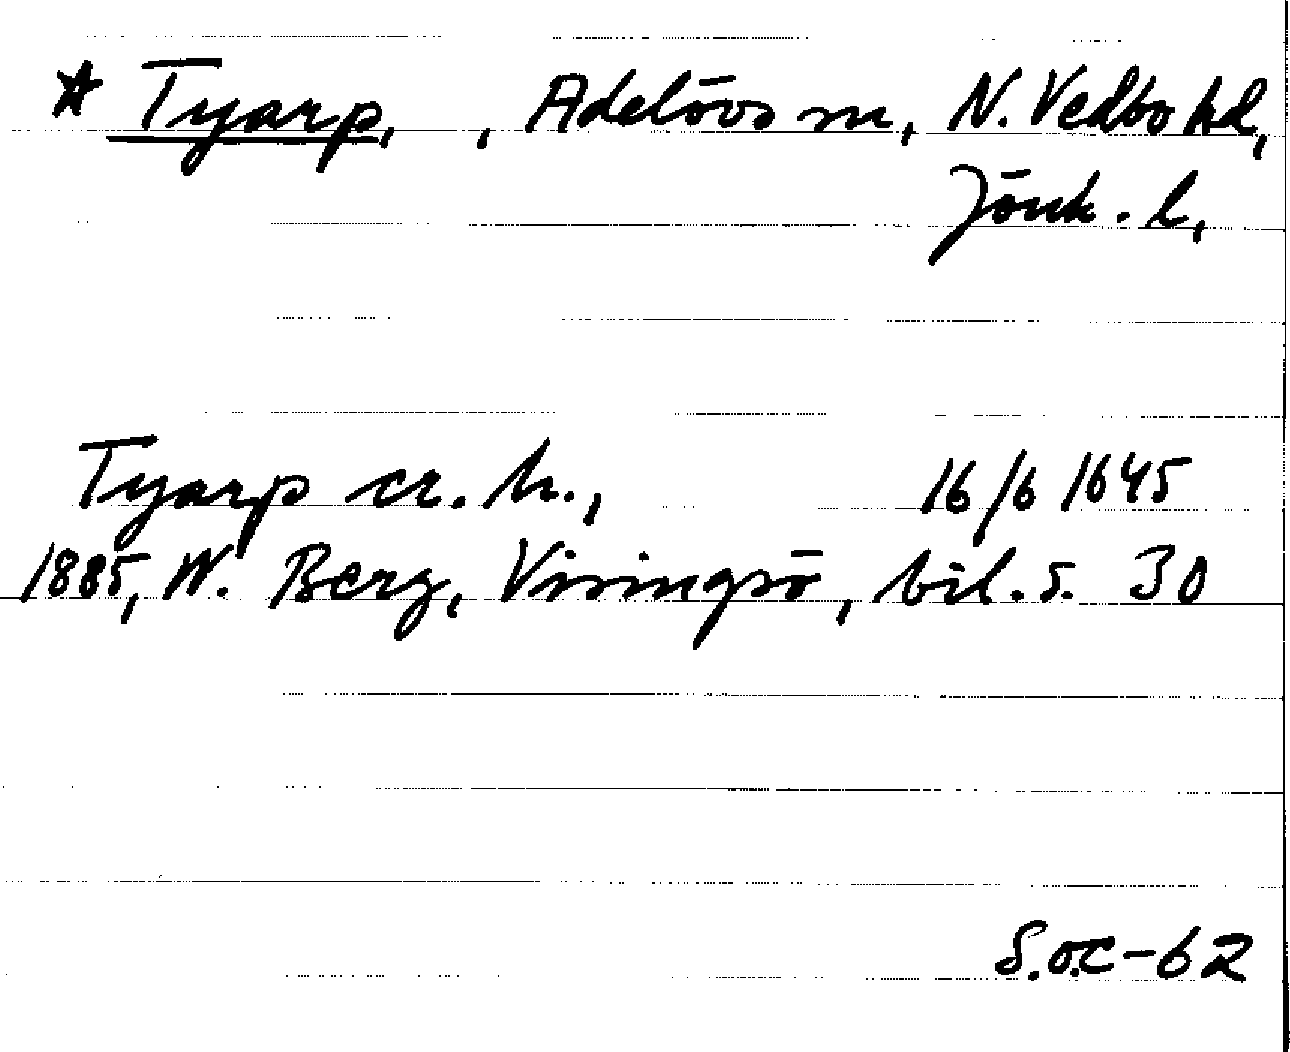 * Tyarp, , Adelövs sn, N. Vedbo hd,
Jönk. l,
Tyarp cr. h., 16/6 1645
1885, W. Berg, Visingsö, bil. s. 30
S.O.C-62